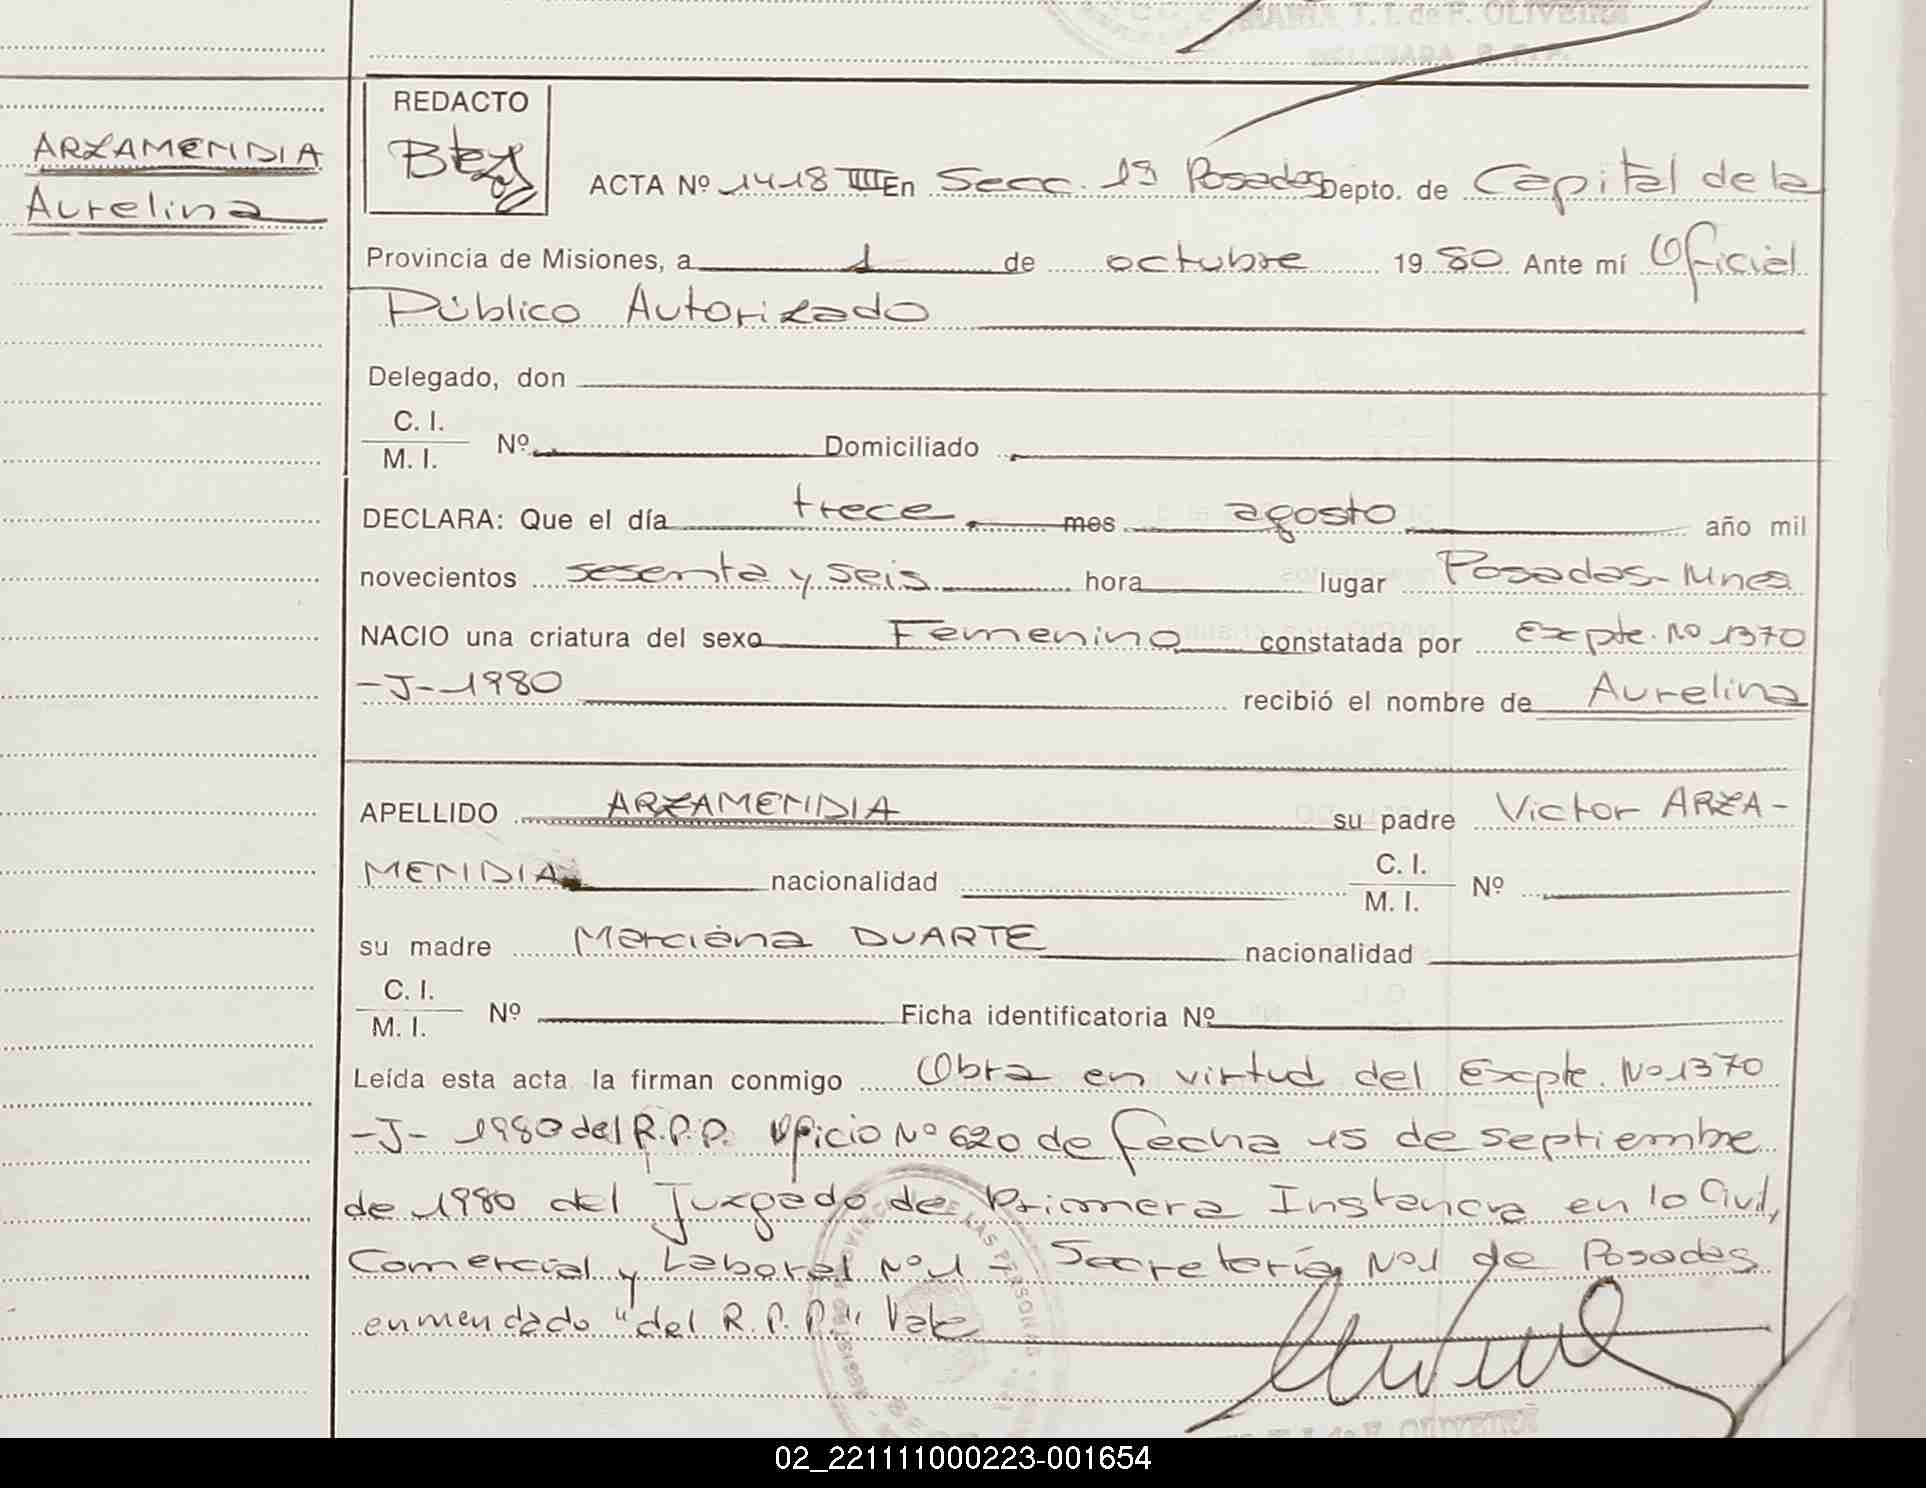 MARIA T. I. de F. OLIVEIRA
REDACTO
ARZAMENDIA
Aurelina
ACTA Nº 1418 IIII En Secc. 1ª Posadas Depto. de Capital de la
Provincia de Misiones, a 1 de octubre 1980 Ante mí Oficial
Público Autorizado
Delegado, don
C. I.
M. I. Nº Domiciliado
DECLARA: Que el día trece mes agosto año mil
novecientos sesenta y seis hora lugar Posadas - Mnes
NACIO una criatura del sexo Femenino constatada por Expte. Nº 1370
-J- 1980 recibió el nombre de Aurelina
APELLIDO ARZAMENDIA su padre Victor ARZA-
MENDIA nacionalidad C. I.
M. I. Nº
su madre Marciana DUARTE nacionalidad
C. I.
M. I. Nº Ficha identificatoria Nº
Leída esta acta la firman conmigo Obra en virtud del Expte. Nº 1370
-J- 1980 del R.P.P. Oficio Nº 620 de fecha 15 de septiembre
de 1980 del Juzgado de Primera Instancia en lo Civil,
Comercial y Laboral Nº 1 - Secretaría Nº 1 de Posadas
enmendado "del R.P.P." Vale
02_221111000223-001654